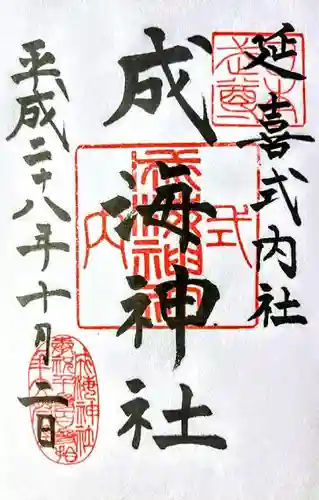 延喜式内社
成海神社
平成二十八年十月二日
成海神社
式
内